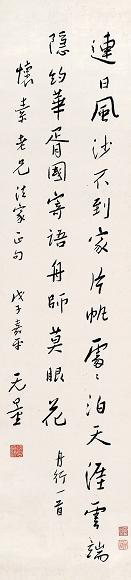 連日風沙不到家片帆處〻泊天涯雲端
隱約華胥國寄語舟師莫眼花 舟行一首
懷素老兄法家正句 戊子嘉平 无量